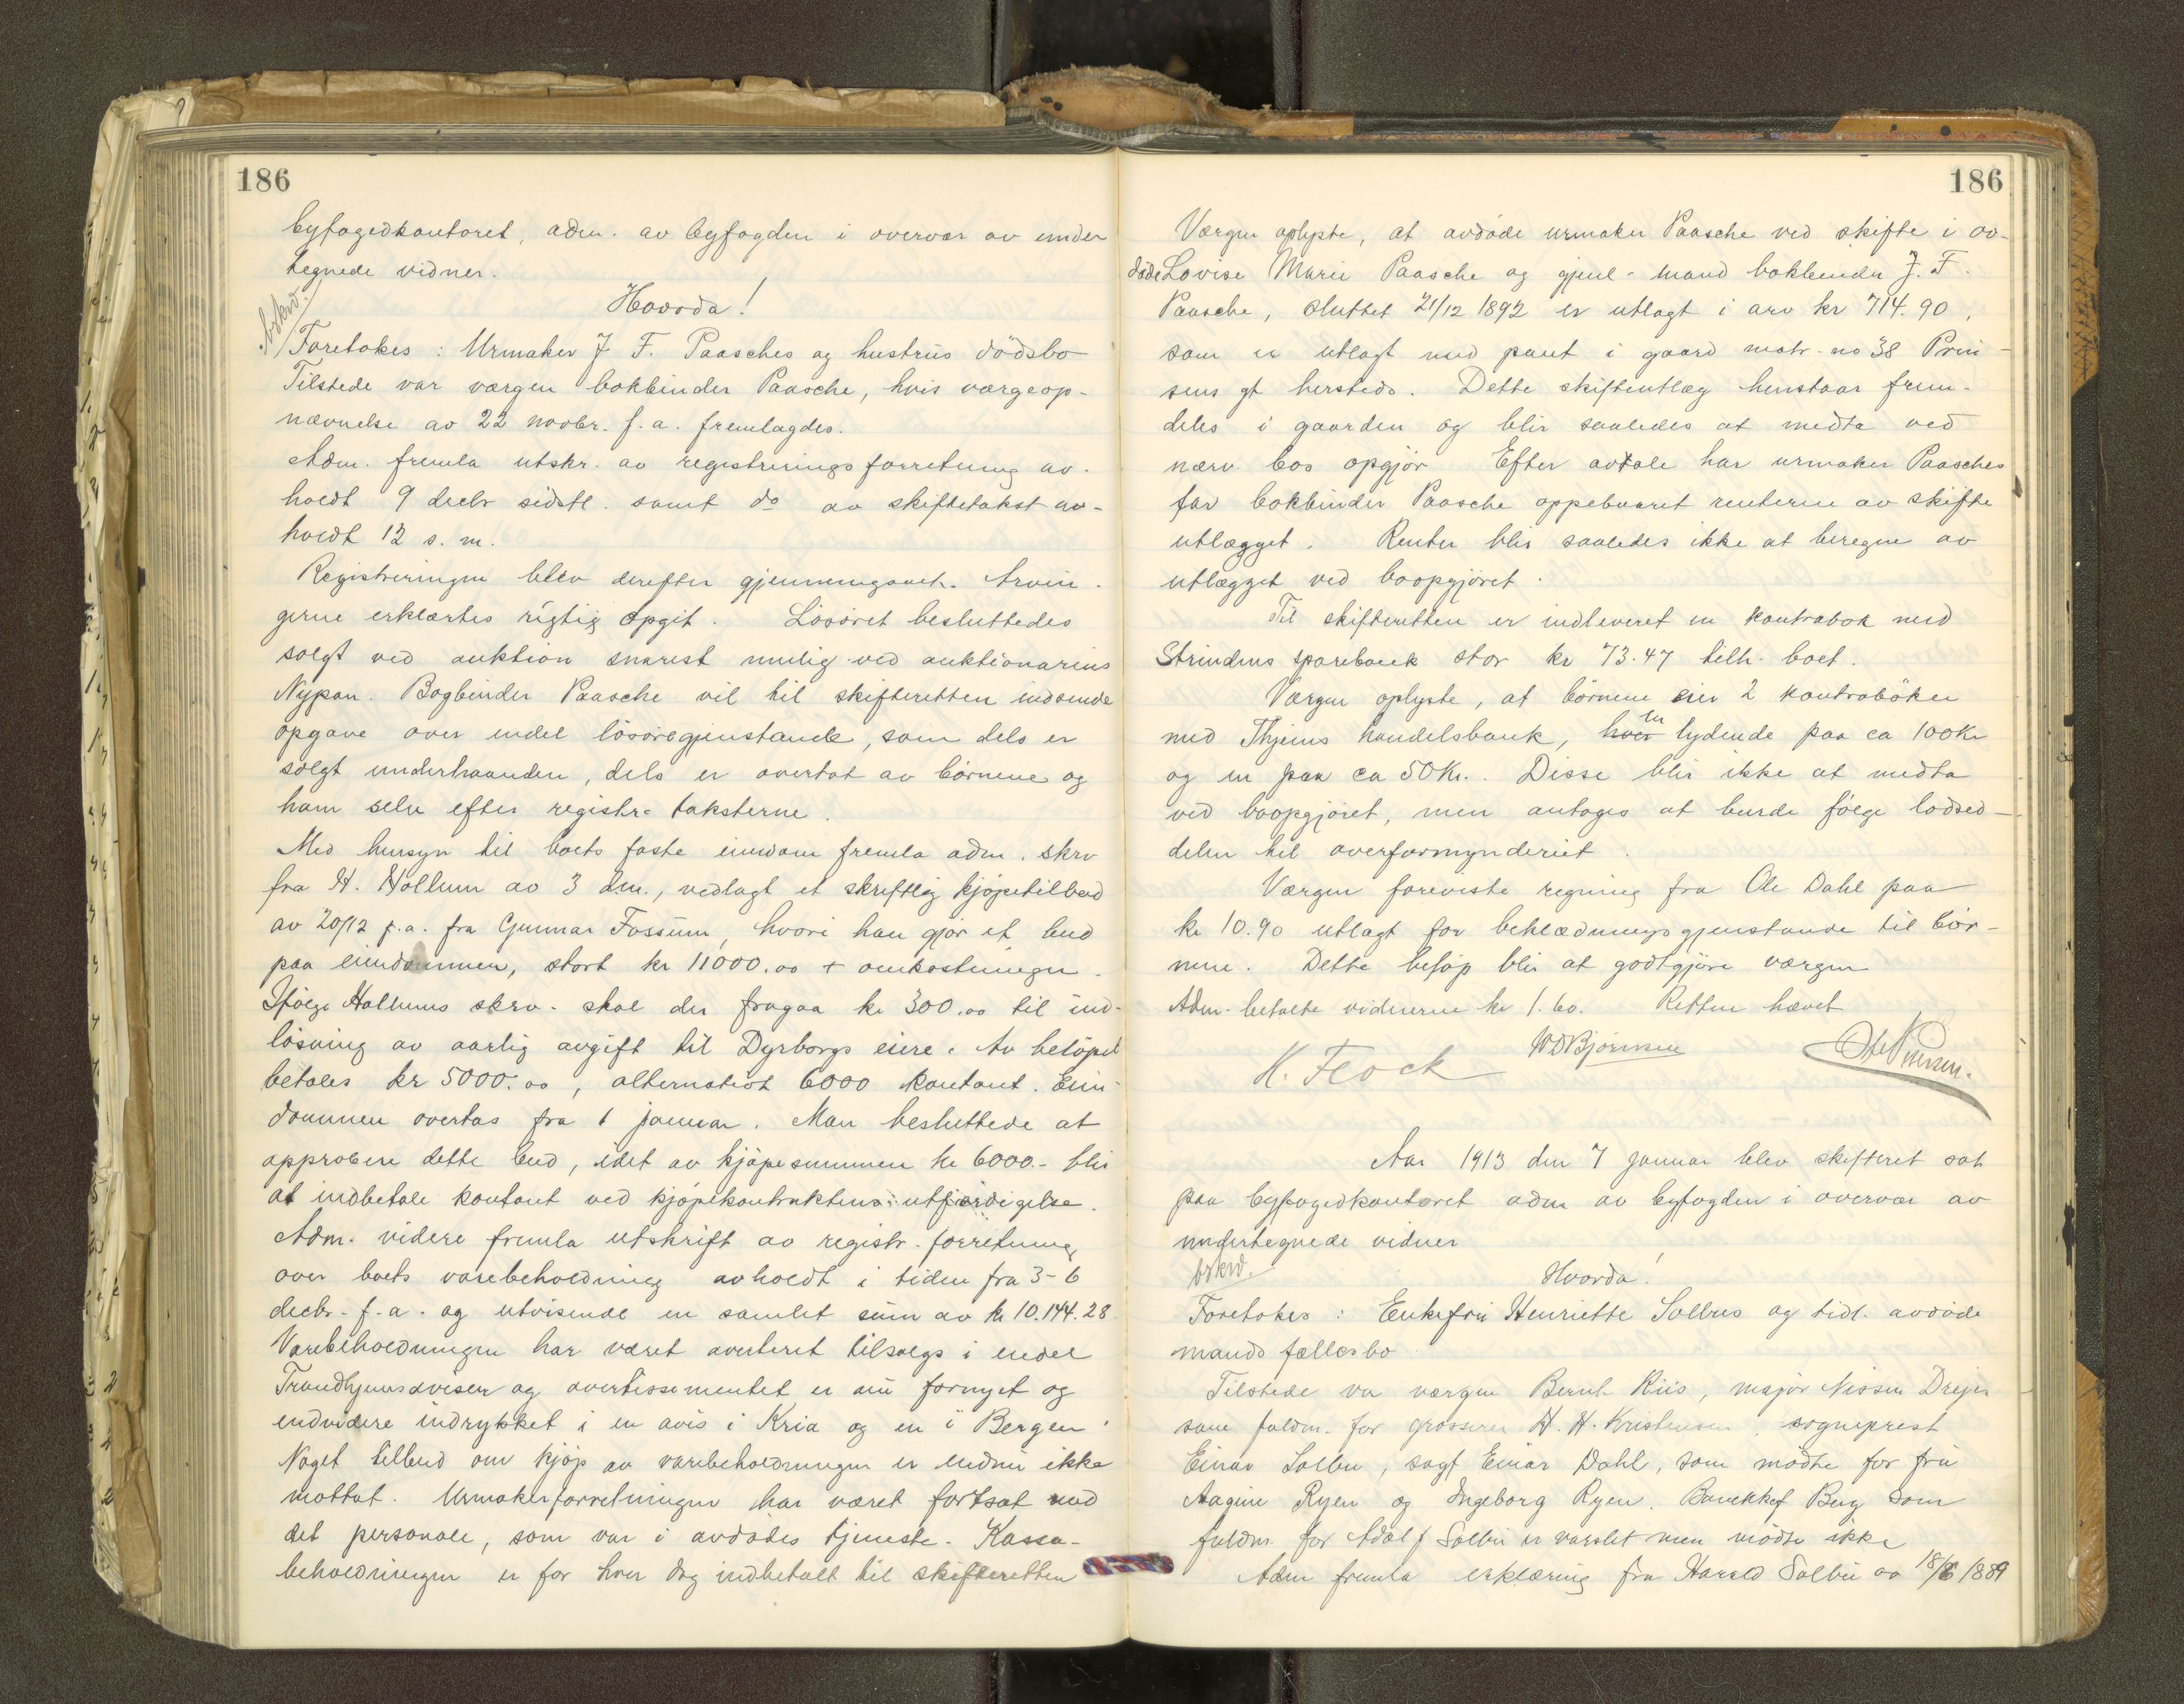 186
byfogedkontoret, adm. av byfogden i overvær av under
tegnede vidner.
Hvorda!
Arkiv.
Foretokes: Urmaker J. F. Paasches og hustrus dödsbo
Tilstede varværgen bokbinder Paasche, hvis værgeop-
nævnelse av 22 novbr. f. a. fremlagdes.
Adm. fremla utskr. av registreringsforretning av-
holdt 9 decbr sidstl. samt do av skiftetakst av-
holdt 12 s. m.
Registreringen blev derefter gjennemgaaet. Arvin-
gerne erklærtes rigtig opgit. Lösöret besluttedes
solgt ved auktion snarest mulig ved auktionarius
Nypan. Bogbinder Paasche vil til skifteretten indsende
opgave over endel lösöregjenstande, som dels er
solgt underhaanden, dels er overtat av börnene og
ham selv efter registr. taksterne.
Med hensyn til boets faste eiendom fremla adm. skrv
fra H. Hollum av 3 dm., vedlagt et skriftlig kjöpetilbud
av 20/12 f. a. fra Gunnar Fossum, hvori han gjör et bud
paa eiendommen, stort kr 11000.00 + omkostninger.
Ifölge Hollums skrv. skal der fragaa kr 300.00 til ind-
lösning av aarlig avgift til Dyrborgs eiere. Av belöpet
betales kr 5000.00, alternativt 6000 kontant. Eien-
dommen overtas fra 1 januar. Man besluttede at
approbere dette bud, idet av kjöpesummen kr 6000.- blir
at indbetale kontant ved kjöpekontraktens utfærdigelse.
Adm. videre fremla utskrift av registr. forretning
over boets varebeholdning avholdt i tiden fra 3-6
decbr. f. a. og utvisende en samlet sum av kr 10.144.28
Varebeholdningen har været averteret tilsalgs i endel
Trondhjemsaviser og avertissementet er nu fornyet og
endvidere indrykket i en avis i Kria og en i Bergen.
Noget tilbud om kjöp av varebeholdningen er endnu ikke
mottat. Urmakerforretningen har været fortsat med
det personale, som var i avdödes tjeneste. Kassa-
beholdningen er for hver dag indbetalt til skifteretten
186
Værgen oplyste, at avdöde urmaker Paasche ved skifte i av-
döde Lovise Marie Paasche og gjenl. mand bokbinder J. F.
Paasche, sluttet 21/12 1892 er utlagt i arv kr 714.90,
som er utlagt med pant i gaard matr. no 38 Prin-
sens gt hersteds. Dette skifteutlæg henstaar frem-
deles i gaarden og blir saaledes at medta ved
nærv. bos opgjör. Efter avtale har urmaker Paasches
far bokbinder Paasche oppebaaret renterne av skifte
utlægget. Renter blir saaledes ikke at beregne av
utlægget ved boopgjöret.
Til skifteretten er indleveret en kontrabok med
Strindens sparebank stor kr 73.47 tilh. boet.
Værgen oplyste, at börnene eier 2 kontraböker
med Thjems handelsbank, hver en lydende paa ca 100Kr
og en paa ca 50Kr. Disse blir ikke at medta
ved boopgjöret, men antages at burde fölge lodsed-
delen til overformynderiet.
Værgen foreviste regning fra Ole Dahl paa
kr 10.90 utlagt for beklædningsgjenstande til bör-
nene. Dette belöp blir at godtgjöre værgen
Adm. betalte vidnerne kr 1.60. Retten hævet
K. Flock WD Björnsen
Aar 1913 den 7 januar blev skifteret sat
paa byfogedkontoret adm av byfogden i overvær av
undertegnede vidner
Arkiv.
Hvorda!
Foretokes: Enkefru Henriette Solbus og tidl. avdöde
mands fællesbo
Tilstede var værgen Bernh Riis, major Nissen Drejer
som fuldm. for grosserer H. H. Kristensen, sogneprest
Einar Solbu, sagf Einar Dahl, som mödte for fru
Aagine Ryen og Ingeborg Ryen. Bankkef Berg som
fuldm. for Adolf Solbu er varslet men mödte ikke
Adm fremla erklæring fra Harald Solbu av 18/6 1889